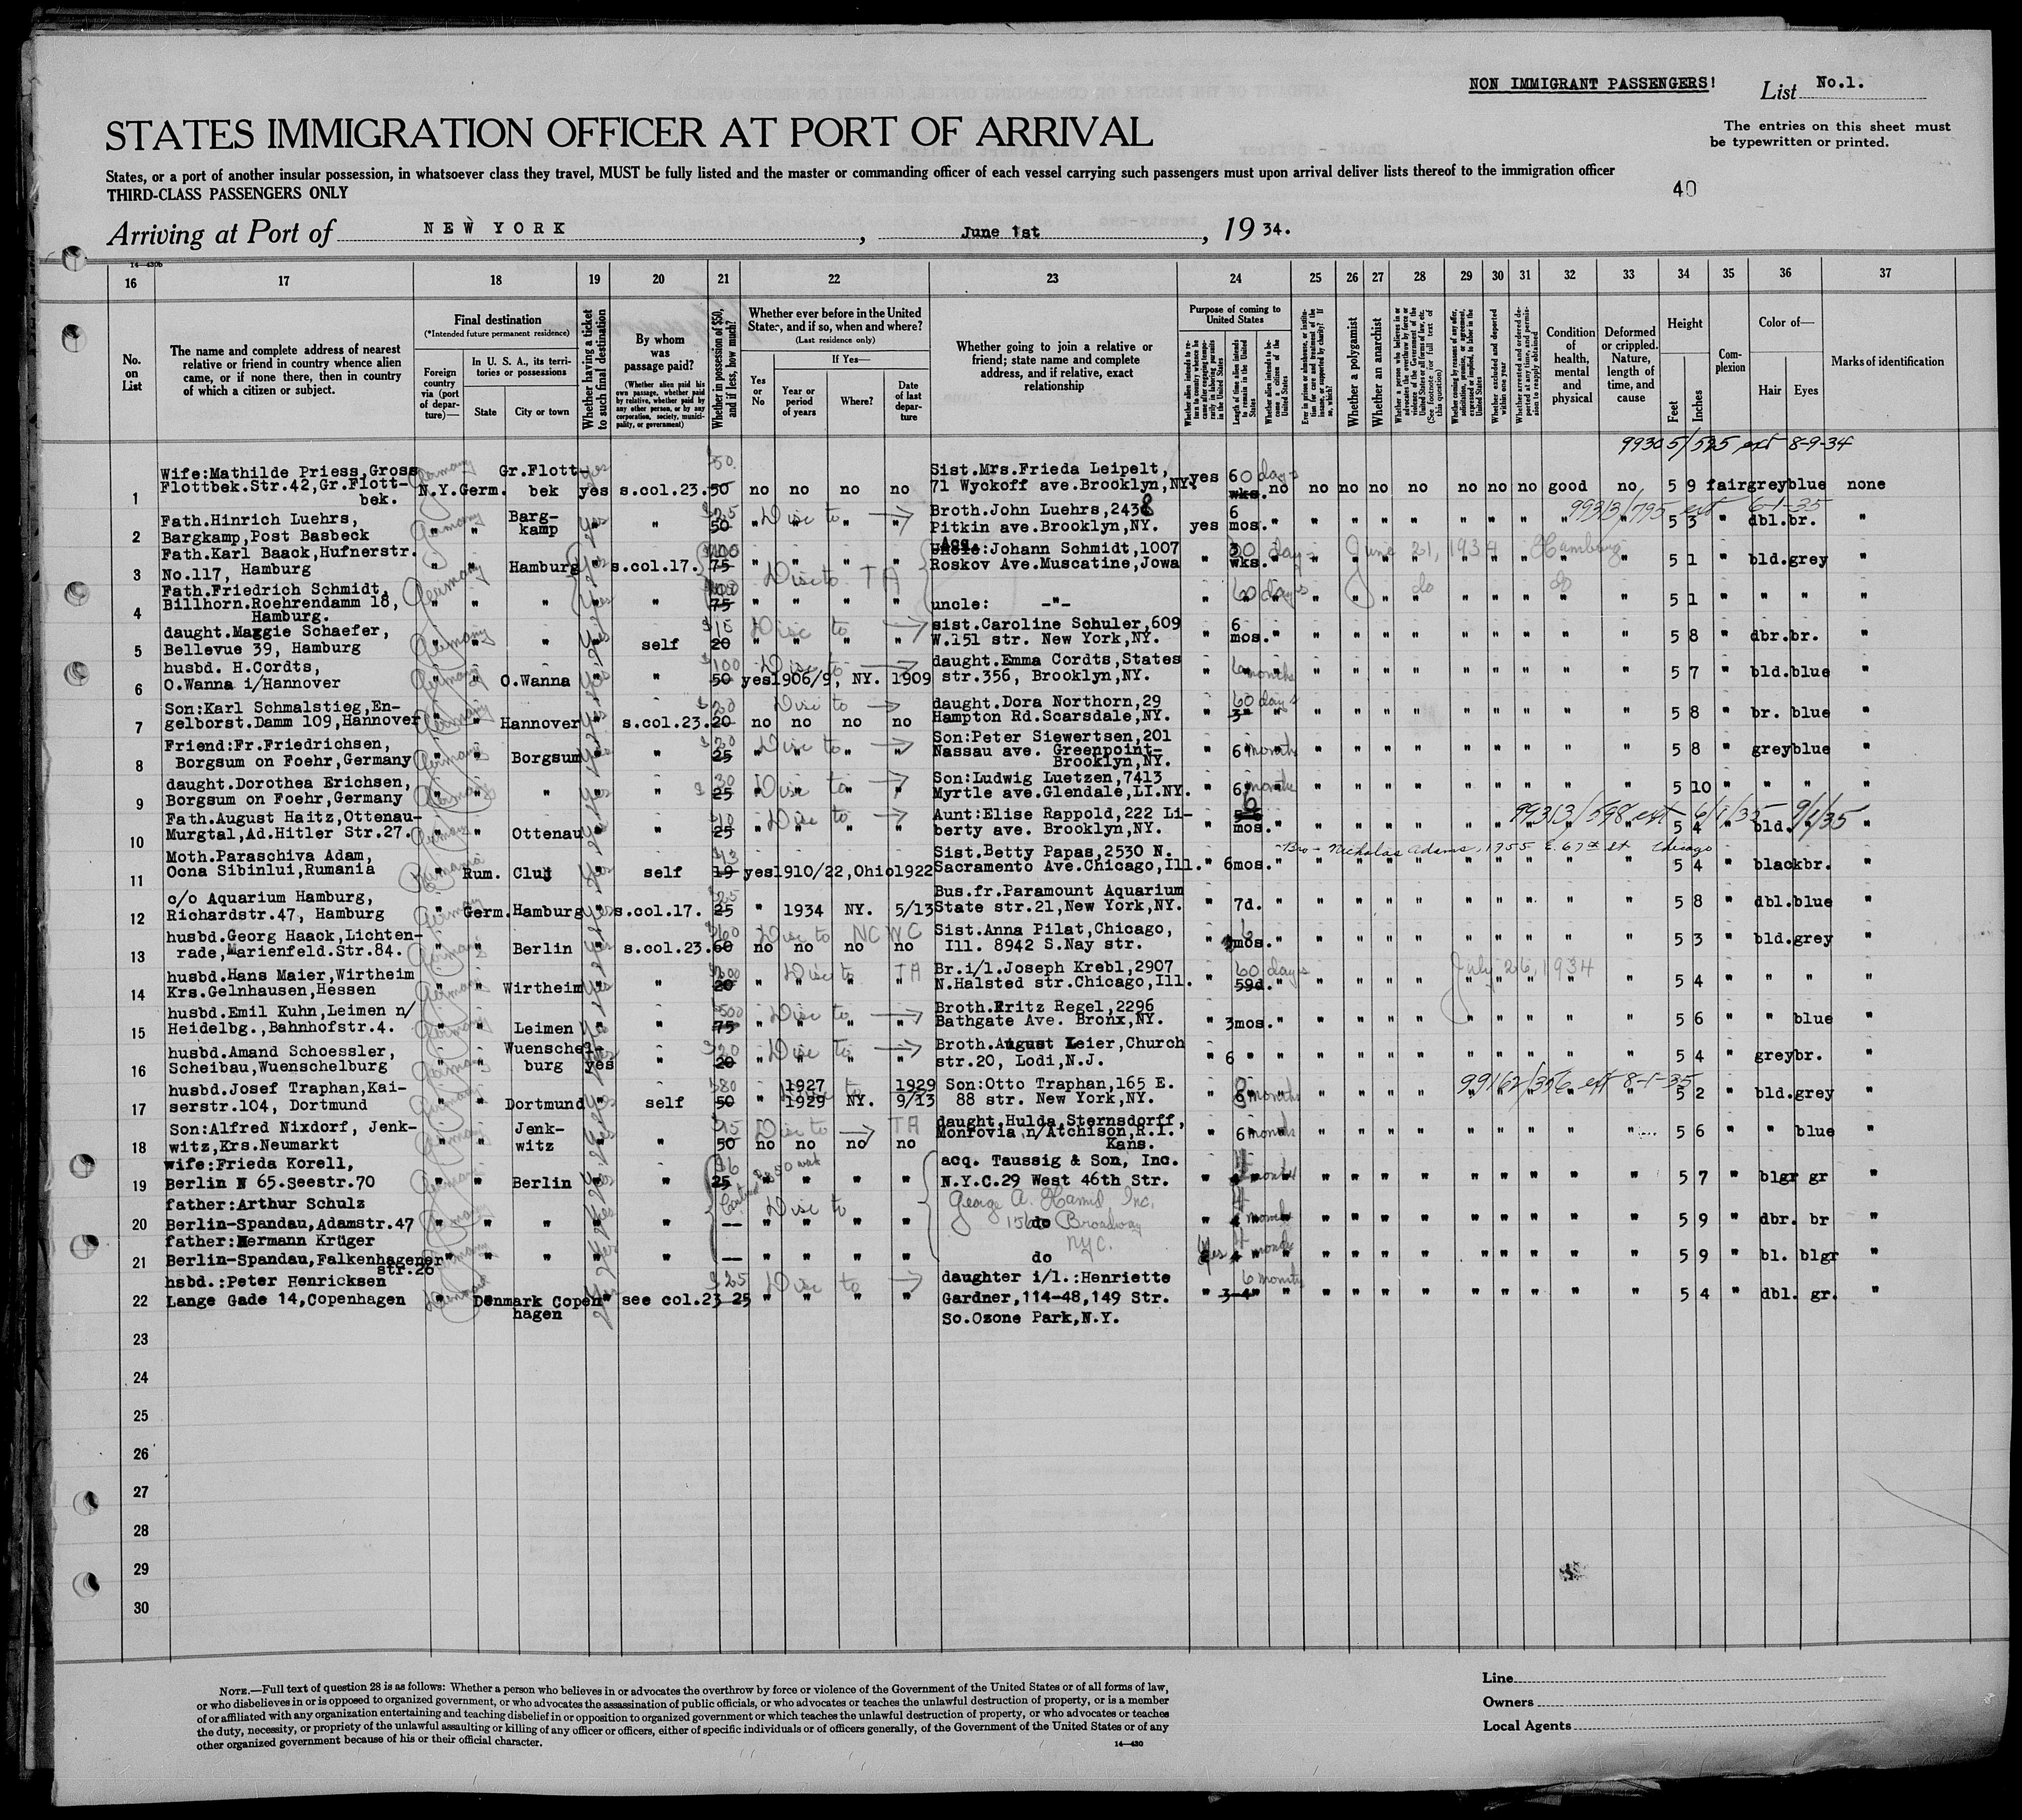 NON IMMIGRANT PASSENGERS!
List No.1.
STATES IMMIGRATION OFFICER AT PORT OF ARRIVAL
The entries on this sheet must
be typewritten or printed.
States, or a port of another insular possession, in whatsoever class they travel, MUST be fully listed and the master or commanding officer of each vessel carrying such passengers must upon arrival deliver lists thereof to the immigration officer
THIRD-CLASS PASSENGERS ONLY
40
Arriving at Port of NEW YORK, June 1st, 1934.
14—430b
16 17 18 19 20 21 22 23 24 25 26 27 28 29 30 31 32 33 34 35 36 37
No. on List
The name and complete address of nearest relative or friend in country whence alien came, or if none there, then in country of which a citizen or subject.
Final destination
(*Intended future permanent residence)
Foreign country via (port of departure)—
In U. S. A., its territories or possessions
State
City or town
Whether having a ticket to such final destination
By whom was passage paid?
(Whether alien paid his own passage, whether paid by relative, whether paid by any other person, or by any corporation, society, municipality, or government)
Whether in possession of $50, and if less, how much?
Whether ever before in the United States, and if so, when and where?
(Last residence only)
Yes or No
If Yes—
Year or period of years
Where?
Date of last departure
Whether going to join a relative or friend; state name and complete address, and if relative, exact relationship
Purpose of coming to United States
Length of time alien intends to remain in the United States
Whether alien intends to become a citizen of the United States
Whether a polygamist
Whether an anarchist
Whether excluded and deported within one year
Condition of health, mental and physical
Deformed or crippled. Nature, length of time, and cause
Height
Feet
Inches
Complexion
Color of—
Hair
Eyes
Marks of identification
99305/525 ext 8-9-34
Wife:Mathilde Priess,Gross Gr.Flott- $50 Sist.Mrs.Frieda Leipelt, 60 days
1 Flottbek.Str.42,Gr.Flott- N.Y. Germ. bek yes s.col.23. 50 no no no no 71 Wyckoff ave.Brooklyn,NY. yes wks. no no no no no no no no good no 5 9 fair grey blue none
bek.
99313/795 ext 6-1-35
Fath.Hinrich Luehrs, Germany Barg- Broth.John Luehrs,2438 6
2 Bargkamp,Post Basbeck " " kamp yes " 50 Disc to → Pitkin ave.Brooklyn,NY. yes mos. " 5 3 " dbl. br. "
Fath.Karl Baack,Hufnerstr. $100 Acq. Uncle:Johann Schmidt,1007 30 days June 21, 1934 Hamburg
3 No.117, Hamburg " " Hamburg s.col.17. 75 Disc to TA Roskov Ave.Muscatine,Iowa " wks. " 5 1 " bld. grey "
Fath.Friedrich Schmidt, Germany
4 Billhorn.Roehrendamm 18, " " " " 75 uncle: -"- 60 days do do 5 1 " " " "
Hamburg.
daught.Maggie Schaefer, Disc to → sist.Caroline Schuler,609 6
5 Bellevue 39, Hamburg Germany " " self 20 W.151 str. New York,NY. " mos. " 5 8 " dbr. br. "
husbd. H.Cordts, $100 Disc to → daught.Emma Cordts,States
6 O.Wanna i/Hannover " " O.Wanna " 50 yes 1906/9, NY. 1909 str.356, Brooklyn,NY. " 6 months " 5 7 " bld. blue "
Son:Karl Schmalstieg,En- Disc to → daught.Dora Northorn,29 60 days
7 gelborst.Damm 109,Hannover " " Hannover s.col.23. 20 no no no no Hampton Rd.Scarsdale,NY. " 3 " 5 8 " br. blue "
Friend:Fr.Friedrichsen, Disc to → Son:Peter Siewertsen,201
8 Borgsum on Foehr,Germany " " Borgsum " 25 Nassau ave. Greenpoint- " 6 months " 5 8 " grey blue "
Brooklyn,NY.
daught.Dorothea Erichsen, $30 Disc to → Son:Ludwig Luetzen,7413
9 Borgsum on Foehr,Germany " " " " 25 Myrtle ave.Glendale,LI.NY. " 6 months " 5 10 " " " "
99313/598 ext 6/1/35 9/1/35
Fath.August Haitz,Ottenau- $10 Disc to → Aunt:Elise Rappold,222 Li- 6
10 Murgtal,Ad.Hitler Str.27. " " Ottenau " 25 berty ave. Brooklyn,NY. " mos. " 5 4 " bld. " "
Bro - Nicholas Adams, 1755 E. 67th st Chicago
Moth.Paraschiva Adam, Rumania $13 Sist.Betty Papas,2530 N.
11 Ocna Sibinlui,Rumania " Rum. Cluj self 19 yes 1910/22,Ohio 1922 Sacramento Ave.Chicago,Ill. " 6mos. " 5 4 " black br. "
c/o Aquarium Hamburg, $25 Bus.fr.Paramount Aquarium
12 Richardstr.47, Hamburg " Germ. Hamburg yes s.col.17. 25 " 1934 NY. 5/13 State str.21,New York,NY. " 7d. " 5 8 " dbl. blue "
husbd.Georg Haack,Lichten- $60 Disc to NCWC Sist.Anna Pilat,Chicago, 6
13 rade,Marienfeld.Str.84. " " Berlin " s.col.23. 60 no no no no Ill. 8942 S.Nay str. " mos. " 5 3 " bld. grey "
husbd.Hans Maier,Wirtheim Disc to TA Br.i/l.Joseph Krebl,2907 60 days July 26, 1934
14 Krs.Gelnhausen,Hessen " " Wirtheim " 20 N.Halsted str.Chicago,Ill. " 59d. " 5 4 " " " "
husbd.Emil Kuhn,Leimen n/ $500 Disc to → Broth.Fritz Regel,2296
15 Heidelbg.,Bahnhofstr.4. " " Leimen " 75 Bathgate Ave. Bronx,NY. " 3mos. " 5 6 " " blue "
husbd.Amand Schoessler, Wuenschel- $20 Disc to → Broth.August Leier,Church
16 Scheibau,Wuenschelburg " " burg yes " 20 str.20, Lodi,N.J. " 6 " " 5 4 " grey br. "
99162/356 ext 8-1-35
husbd.Josef Traphan,Kai- $80 1927 1929 Son:Otto Traphan,165 E.
17 serstr.104, Dortmund " " Dortmund self 50 " 1929 NY. 9/13 88 str. New York,NY. " 8 months " 5 2 " bld. grey "
Son:Alfred Nixdorf, Jenk- Jenk- Disc to → TA daught,Hulda Sternsdorff,
18 witz,Krs.Neumarkt " " witz " 50 no no no no Monrovia n/Atchison,R.I. " 6 months " 5 6 " " blue "
Kans.
wife:Frieda Korell, $6 acq. Taussig & Son, Inc.
19 Berlin N 65.Seestr.70 " " Berlin " " 25 N.Y.C.29 West 46th Str. " 4 months " 5 7 " blgr gr "
father:Arthur Schulz Disc to George A. Hamid Inc.
20 Berlin-Spandau,Adamstr.47 " " " " — do 1560 Broadway " 4 months " 5 9 " dbr. br "
father:Hermann Krüger NYC.
21 Berlin-Spandau,Falkenhagener " " " " — do yes 4 months " 5 9 " bl. blgr "
str.26
hsbd.:Peter Henricksen $25 Disc to → daughter i/l.:Henriette 6 months
22 Lange Gade 14,Copenhagen Denmark " Denmark Copen " see col.23 25 Gardner,114-48,149 Str. " 3-4 " 5 4 " dbl. gr. "
hagen So.Ozone Park,N.Y.
23
24
25
26
27
28
29
30
NOTE.—Full text of question 28 is as follows: Whether a person who believes in or advocates the overthrow by force or violence of the Government of the United States or of all forms of law,
or who disbelieves in or is opposed to organized government, or who advocates the assassination of public officials, or who advocates or teaches the unlawful destruction of property, or is a member
of or affiliated with any organization entertaining and teaching disbelief in or opposition to organized government or which teaches the unlawful destruction of property, or who advocates or teaches
the duty, necessity, or propriety of the unlawful assaulting or killing of any officer or officers, either of specific individuals or of officers generally, of the Government of the United States or of any
other organized government because of his or their official character.
14—430
Line
Owners
Local Agents